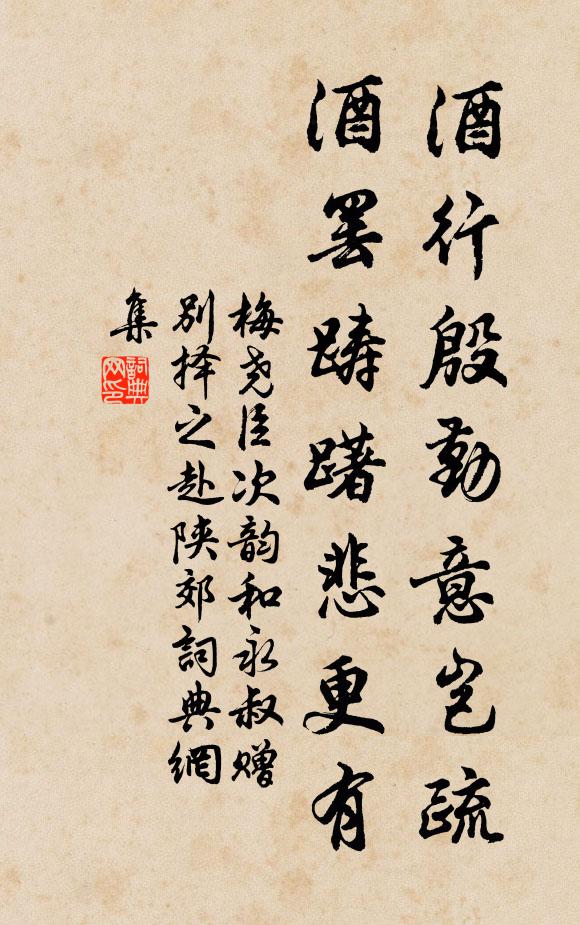 酒行殷勤意岂疏
酒罢踌躇悲更有
梅尧臣次韵和永叔赠
别择之赴陕郊詞典網
集
詞典
网印